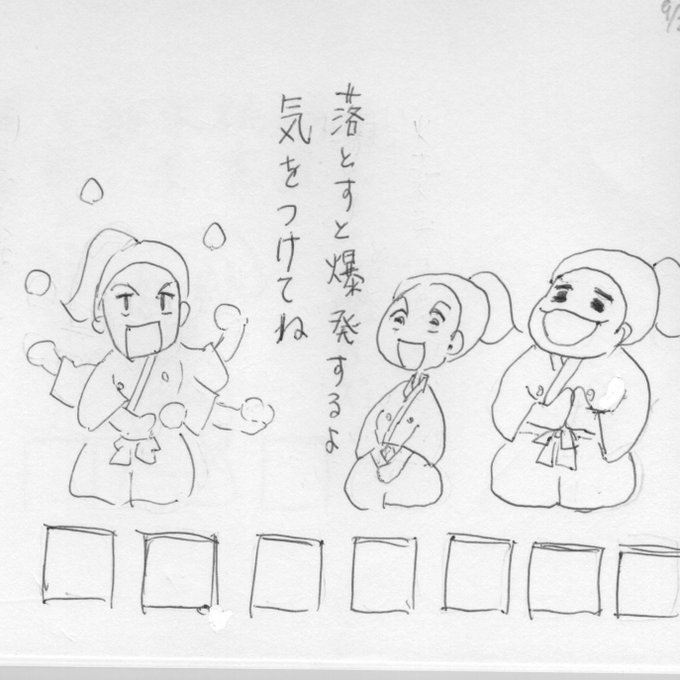 落とすと爆発するよ
気をつけてね